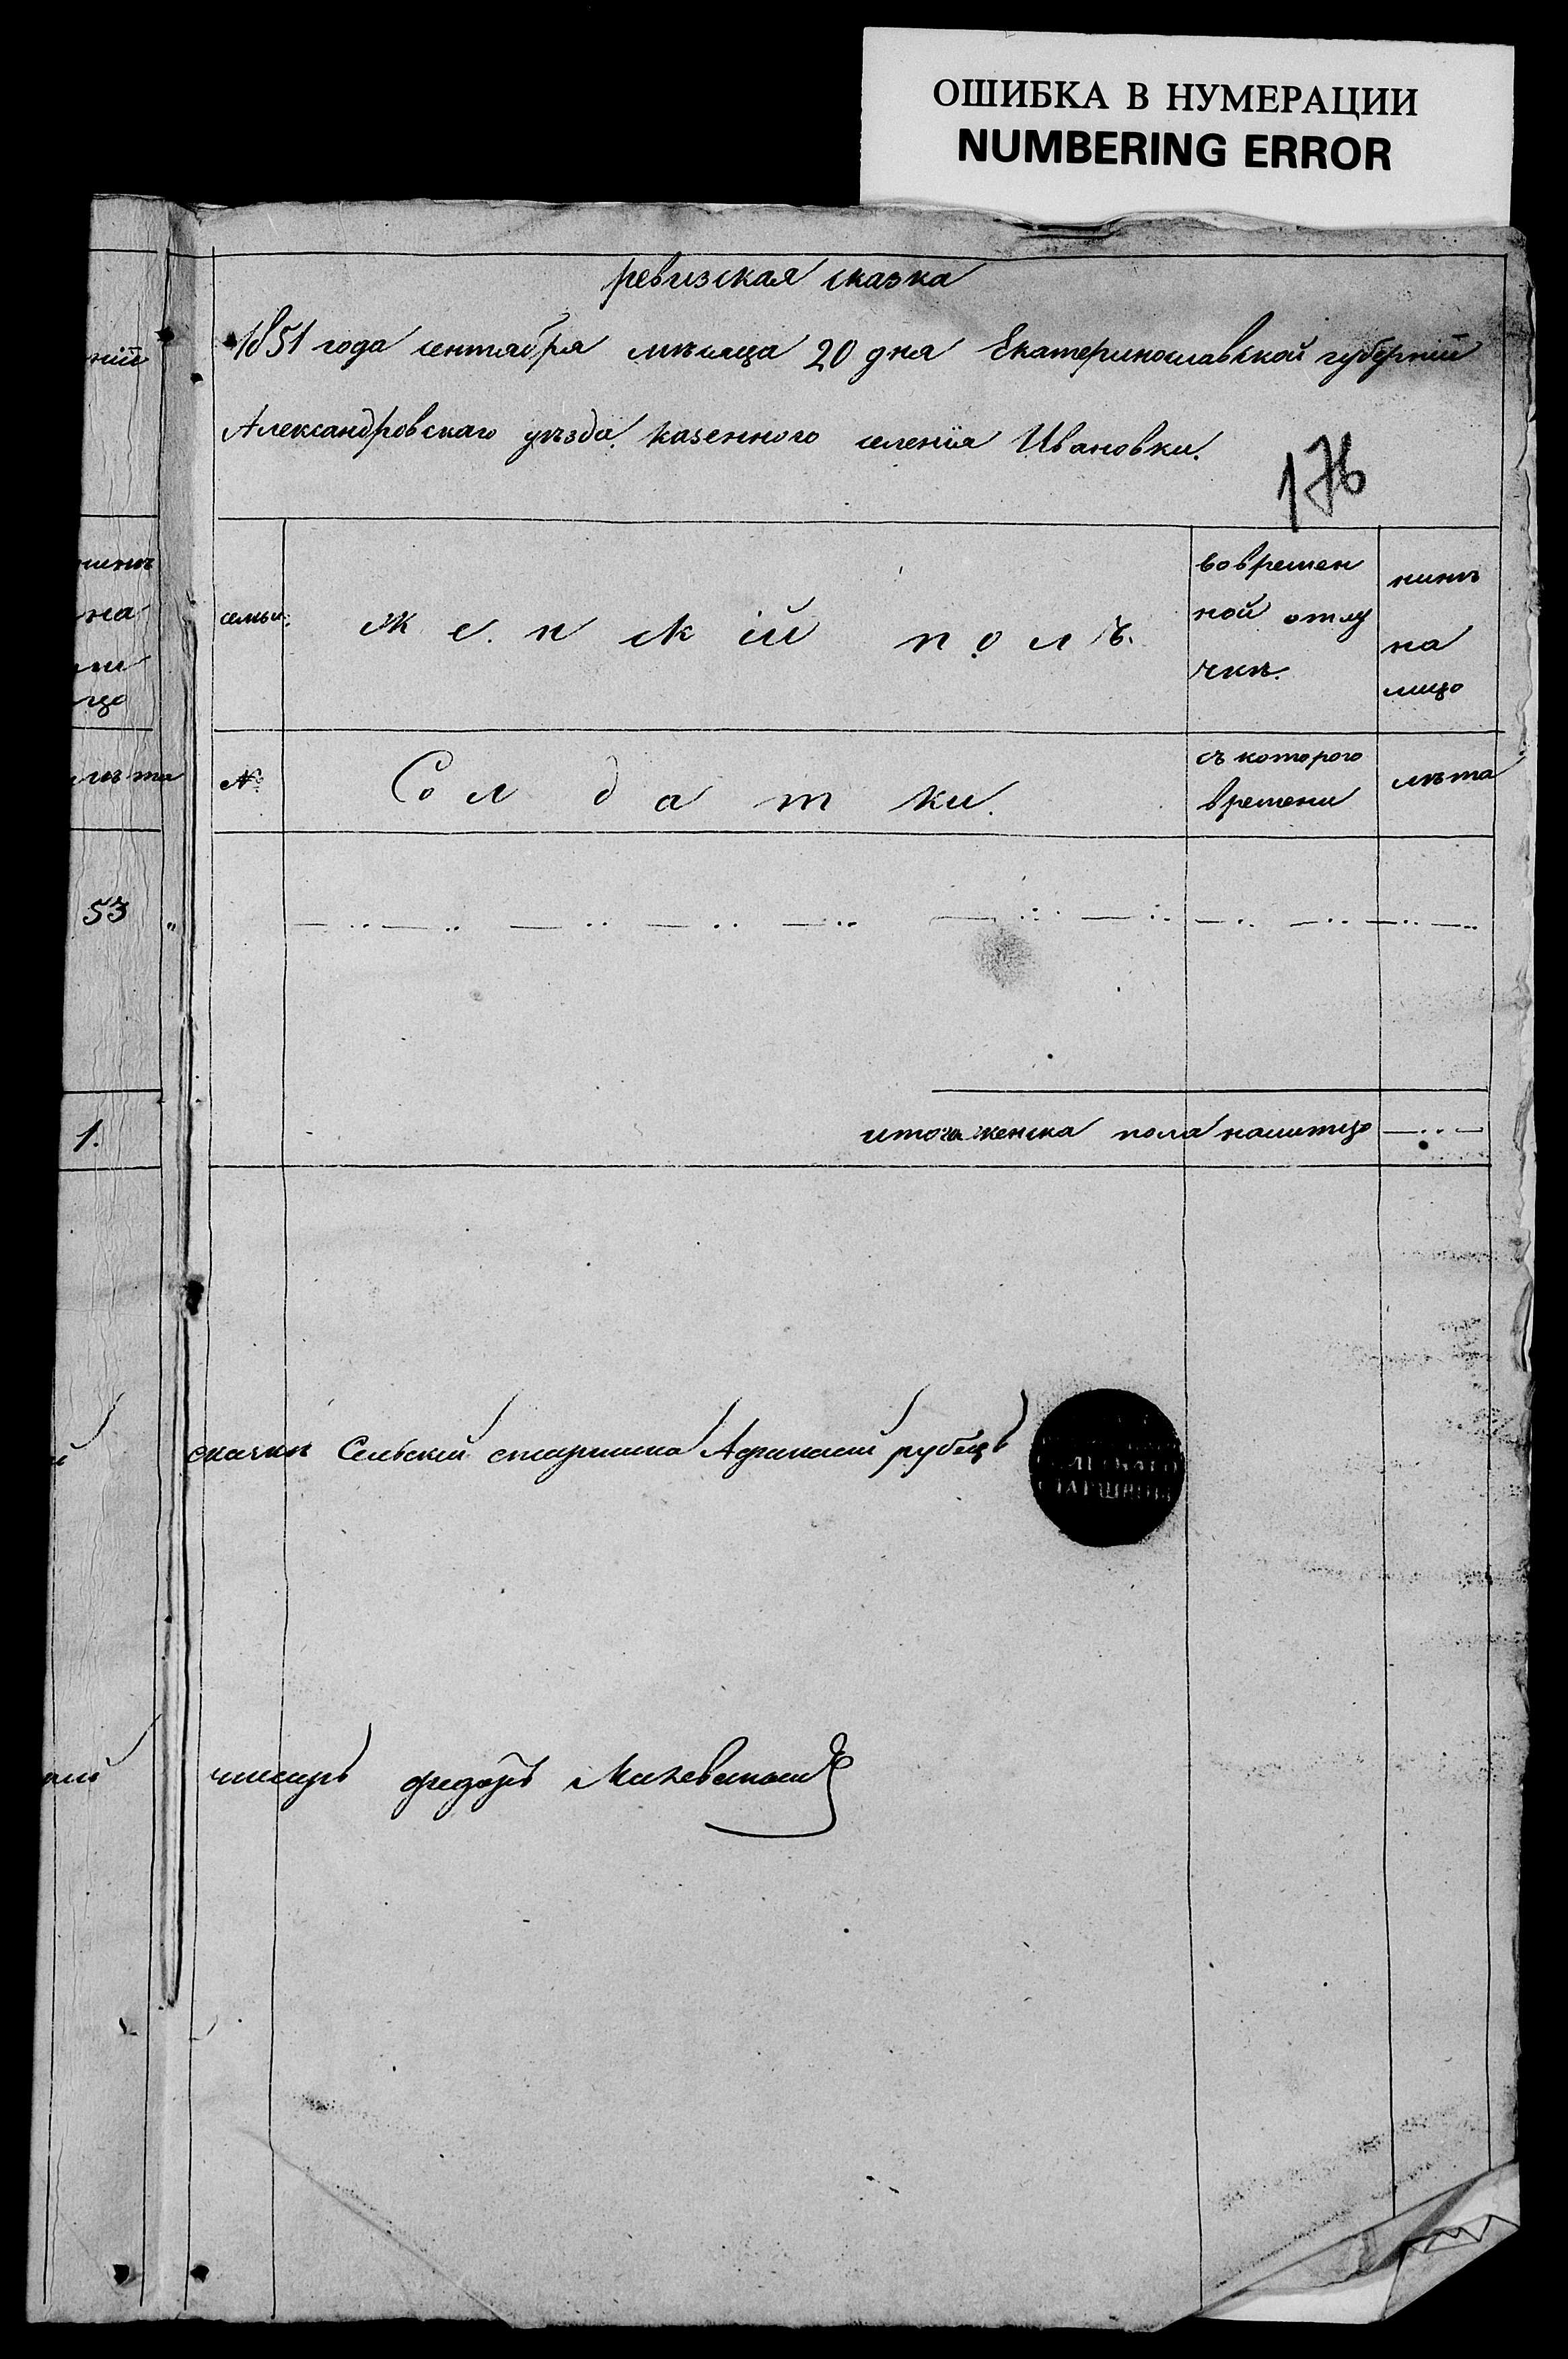 ОШИБКА В НУМЕРАЦИИ
NUMBERING ERROR
ревизская сказка
1851 года сентября мѣсяца 20 дня Екатеринославской губерніи
Александровскаго уѣзда казенного селенія Ивановки.
176
семьи:
Женскій полъ.
вовремен
ной отлу
чкѣ.
нынѣ
на
лицо
№
Солдатки.
съ которого
времени
лѣта
53
1.
итога женска пола налицо
Сельский старшина Афанасий рубецъ
СЕЛЬСКАГО
СТАРШИНЫ
федоръ